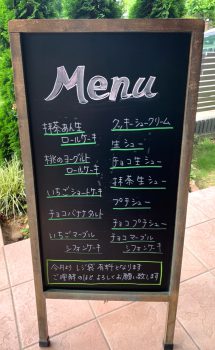 Menu
抹茶あん生
ロールケーキ
桃のヨーグルト
ロールケーキ
いちごショートケーキ
チョコバナナタルト
いちごマーブル
シフォンケーキ
クッキーシュークリーム
生シュー
チョコ生シュー
抹茶生シュー
プチシュー
チョコプチシュー
チョコマーブル
シフォンケーキ
今月より レジ袋 有料となります
ご理解のほど よろしくお願い致します